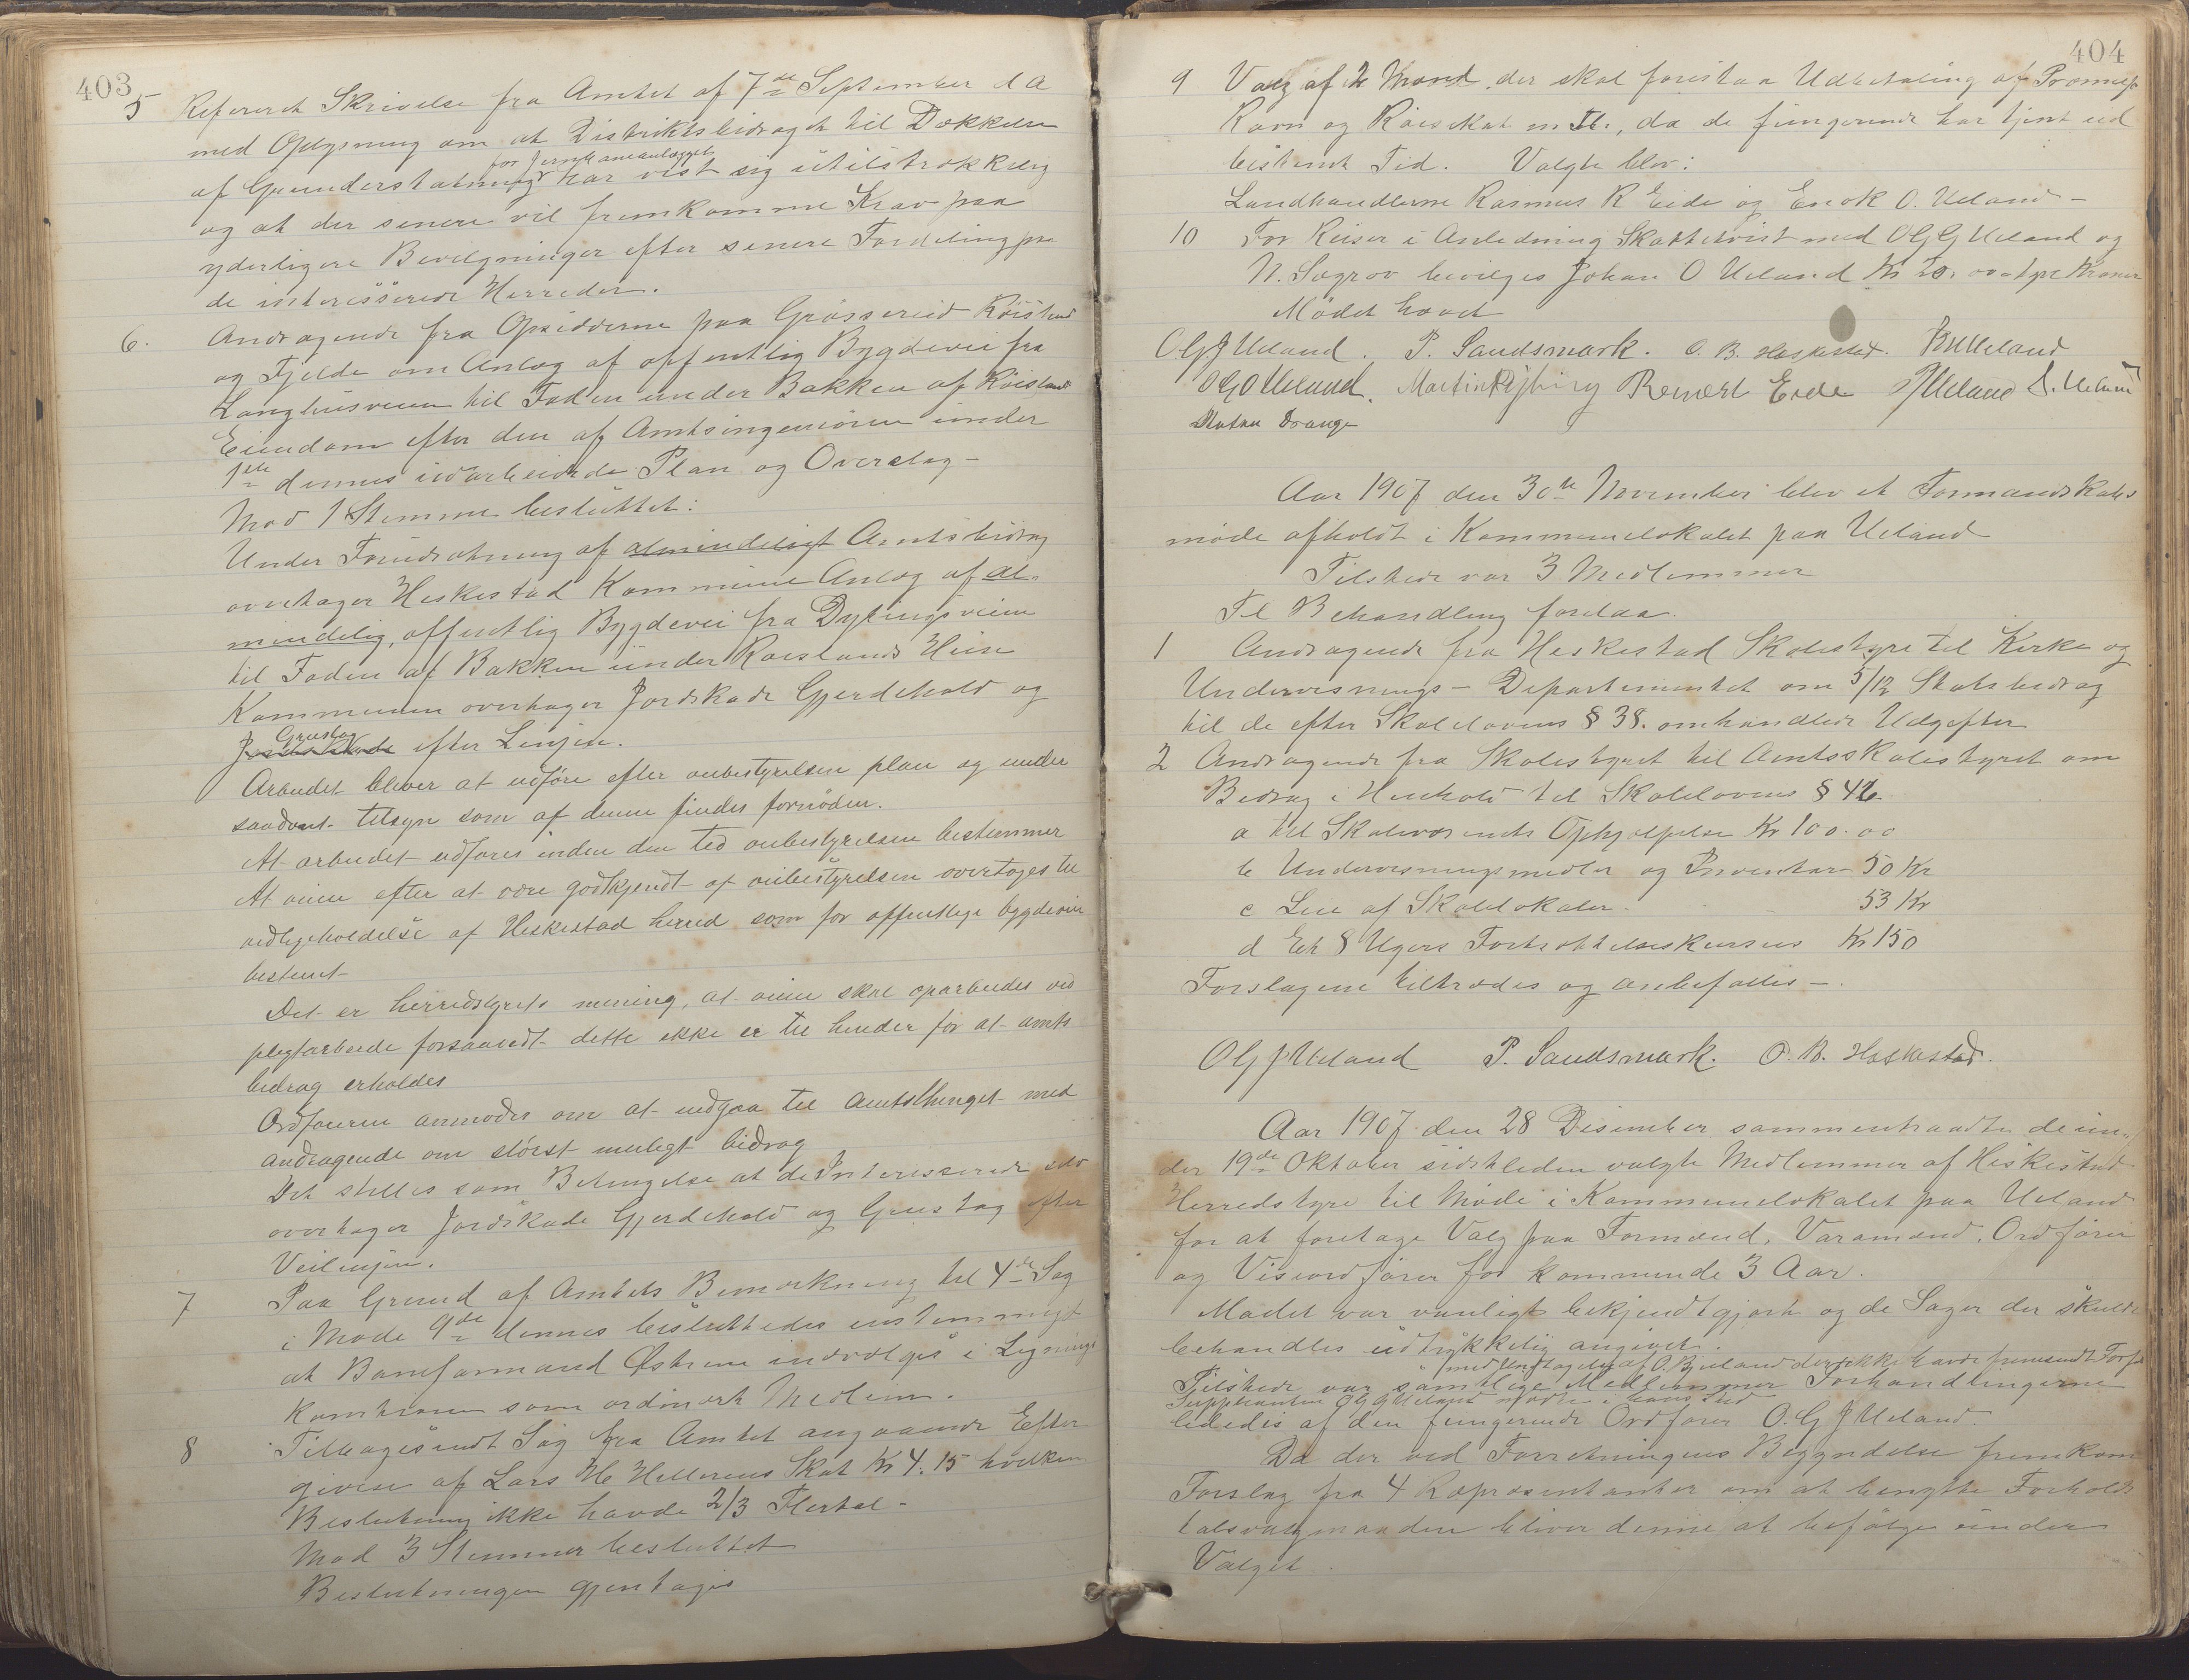 403
5 Refereret Skrivelse fra Amtet af 7de September d A
med Oplysning om at Distriktsbidraget til Dækkelse
for Jernbaneanlægget
af Grunderstatning har vist sig utilstrækkelig
og at der senere vil fremkomme Krav paa
yderligere Bevilgninger efter senere Fordeling paa
de interesserede Herreder.
6. Andragende fra Opsidderne paa Grøsereid Röisland
og Fjelde om Anlæg af offentlig Bygdevei fra
Langhusveien til Foden under Bakken af Röislands
Eiendom efter den af Amtsingeniören under
1ste dennes udarbeidede Plan og Overslag –
Mod 1 Stemme besluttet:
Under Forudsætning af almindeligt Amtsbidrag
overtager Heskestad Kommune Anlæg af al-
mindelig, offentlig Bygdevei fra Dybingsveien
til Foden af Bakken under Røislands Huse
Kommunen overtager Jordskade Gjerdehold og
Grustag
Jordskade efter Linjen.
Arbeidet bliver at udføre efter veibestyrelsens plan og under
saadant tilsyn som af denne findes fornøden.
At arbeidet udføres inden den tid veibestyrelsen bestemmer
At veien efter at være godkjendt af veibestyrelsen overtages til
vedligeholdelse af Heskestad herred som for offentlige bygdeveie
bestemt
Det er herredstyrets mening, at veien skal oparbeides ved
pligtarbeide forsaavidt dette ikke er til hinder for at amts
bidrag erholdes
Ordføreren anmodes om at indgaa til Amtsthinget med
andragende om størst muligt bidrag
Det stilles som Betingelse at de Interesserede selv
overtager Jordskade Gjerdehold og Grustag efter
Veilinjen.
7 Paa Grund af Amtets Bemærkning til 4de Sag
i Møde 9de dennes besluttedes enstemmigt
at Baneformand Østrem indvælges i Lignings
Komitéen som ordinært Medlem.
8 Tilbagesendt Sag fra Amtet angaaende Efter
givelse af Lars H Hellerens Skat Kr 4.15 hvilken
Beslutning ikke havde 2/3 Flertal –
Mod 3 Stemmer besluttet
Beslutningen gjentages
404
9 Valg af 2 Mænd der skal forestaa Udbetaling af Præmie for
Ravn og Röiskat m fl., da de fungerende har tjent ud
bestemt Tid. Valgte blev:
Landhandlerne Rasmus R Eide og Enok O. Ueland –
10 For Reiser i Anledning Skattetvist med O G G Ueland og
N. Sægrov bevilges Johan O Ueland Kr 20. er tyve Kroner
Mödet hævet
O G J Ueland. P. Sandsmark. O. B. Heskestad. Ueland
O G O Ueland. Martin Dybing Bernert Eide Ueland S. Ueland
Drange
Aar 1907 den 30te November blev et Formandskabs
møde afholdt i Kommunelokalet paa Ueland
Tilstede var 3 Medlemmer
Til Behandling forelaa.
1 Andragende fra Heskestad Skolestyre til Kirke og
Undervisnings – Departementet om 5/12 Statsbidrag
til de efter Skolelovens § 38. omhandlede Udgifter
2 Andragende fra Skolestyret til Amtsskolestyret om
Bidrag i Henhold til Skolelovens § 42.
a til Skolevæsenets Ophjælpelse Kr 100.00
b Undervisningsmidler og Inventar 50 Kr
c Leie af Skolelokaler 53 Kr
d Et 8 Ugers Fortsættelseskursus Kr 150
Forslagene tiltrædes og anbefales –.
O G J Ueland P. Sandsmark. O. B. Heskestad.
Aar 1907 den 28 Desember sammentraadte de un-
der 19de Oktober sidstleden valgte Medlemmer af Heskestad
Herredstyre til Møde i Kommunelokalet paa Ueland
for at foretage Valg paa Formænd, Varamænd, Ordfører
og Viseordfører for kommende 3 Aar.
Mødet var vanligt bekjendtgjort og de Sager der skulde
behandles udtrykkelig angivet.
med Undtagelse af O. Bjueland der ikke havde fremsendt Forfald
Tilstede var samtlige Medlemmer Forhandlingerne
Suppleanten O G G Ueland mødte i hans Sted
lededes af den fungerende Ordfører O. G J Ueland.
Da der ved Forretningens Begyndelse fremkom
Forslag fra 4 Repræsentanter om at benytte Forholds
talsvalgmaaden bliver denne at befølge under
Valget.